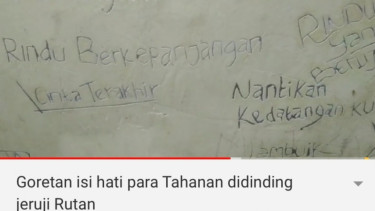 Rindu Berkepanjangan
Cinta Terakhir
RINDU
yang
Nantikan
Kedatangan Ku
Goretan isi hati para Tahanan didinding
jeruji Rutan